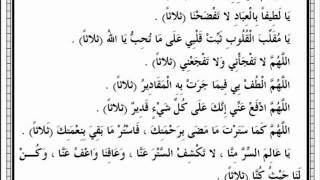 يَا لَطِيفاً بِالْعِبَادِ لاَ تَفْضَحْنَا (ثلاثاً) .
يَا مُقَلِّبَ الْقُلُوبِ ثَبِّتْ قَلْبِي عَلَى مَا تُحِبُّ يَا الله (ثلاثاً) .
اللَّهُمَّ لاَ تَفْجَأْنِي وَلاَ تَفْجَعْنِي (ثلاثاً) .
اللَّهُمَّ الْطُفْ بِي فِيمَا جَرَتْ بِهِ الْمَقَادِيرُ (ثلاثاً) .
اللَّهُمَّ ادْفَعْ عَنِّي إِنَّكَ عَلَى كُلِّ شَيْءٍ قَدِيرٌ (ثلاثاً) .
اللَّهُمَّ كَمَا سَتَرْتَ مَا مَضَى بِرَحْمَتِكَ ، فَاسْتُرْ مَا بَقِيَ بِنِعْمَتِكَ (ثلاثاً) .
يَا عَالِمَ السِّرِّ مِنَّا ، لاَ تَكْشِفِ السِّتْرَ عَنَّا ، وَعَافِنَا وَاعْفُ عَنَّا ، وَكُنْ
لَنَا حَيْثُ كُنَّا (ثلاثاً) .